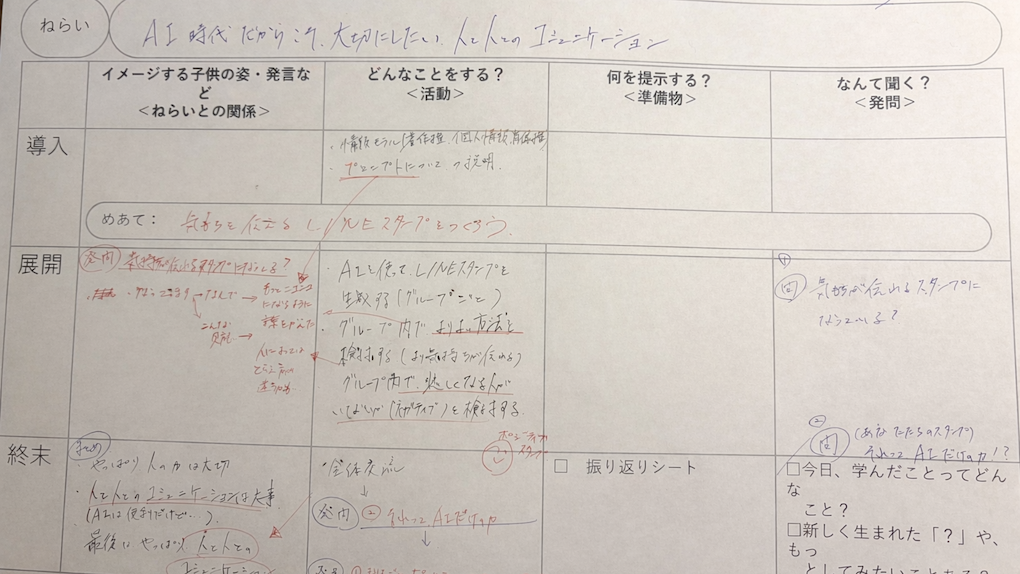 ねらい
AI時代だからこそ、大切にしたい、人と人とのコミュニケーション
イメージする子供の姿・発言な
ど
<ねらいとの関係>
どんなことをする?
<活動>
何を提示する?
<準備物>
なんて聞く?
<発問>
導入
・情報モラル(著作権、個人情報、肖像権)
・プロンプトについて の説明
めあて:
気持ちを伝えるLINEスタンプをつくろう。
展開
発問
気持ちが伝わるスタンプになってる?
なってます → なんで →
こんな
・AIを使って、LINEスタンプを
生成する(グループごと)
・グループ内でよりよい方法を
検討する(より気持ちが伝わる)
・グループ内で、悲しくなる人が
いないか(ネガティブ)を検討する。
①
問
気持ちが伝わるスタンプに
なっている?
②
問
(あなたたちのスタンプ)
それってAIだけの力!?
終末
まとめ
やっぱり人の力は大切
・人と人とのコミュニケーションは大事
(AIは便利だけど…)
最後は やっぱり 人と人との
コミュニケーション
ポジティブ
スタンプ
・全体交流
↓
発問 ② それってAIだけの力
↓
□ 振り返りシート
□今日、学んだことってどん
な
こと?
□新しく生まれた「?」や、
もっ
としてみたいことある?